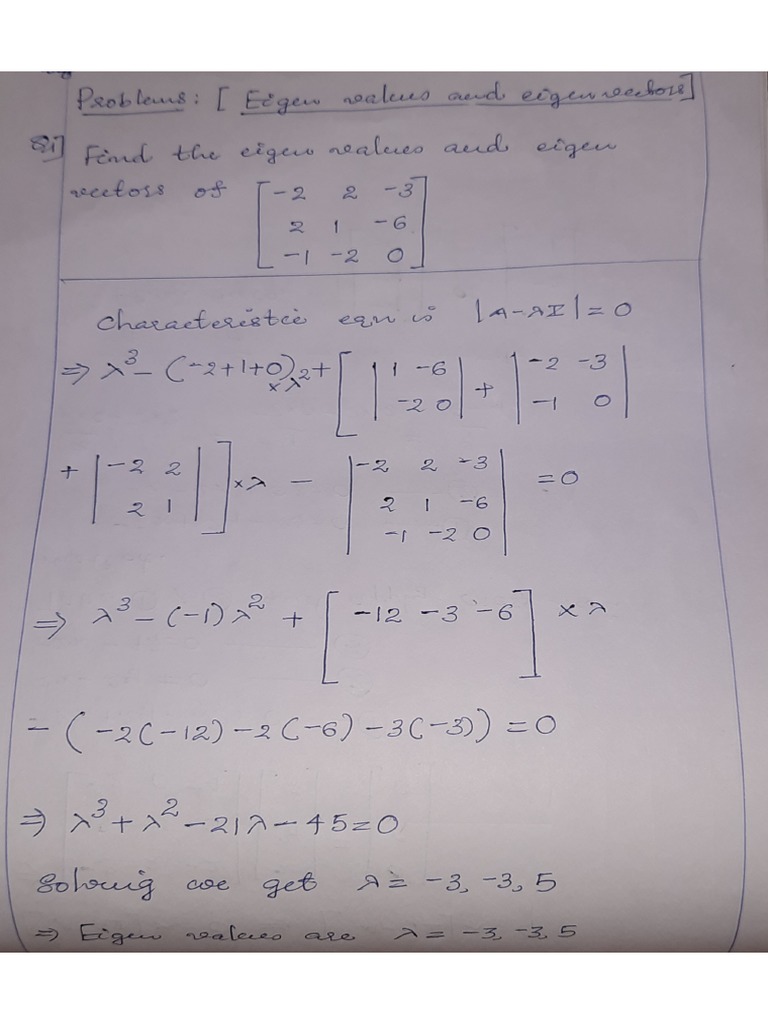 Problems: [ Eigen values and eigen vectors]
Q1] Find the eigen values and eigen
vectors of [ -2 2 -3
2 1 -6
-1 -2 0 ]
Characteristic eqn is |A-λI| = 0
⇒ λ³ - (-2+1+0)×λ² + [ | 1 -6
-2 0 | + | -2 -3
-1 0 |
+ | -2 2
2 1 | ] ×λ - | -2 2 -3
2 1 -6
-1 -2 0 | = 0
⇒ λ³ - (-1) λ² + [ -12 -3 -6 ] × λ
- ( -2(-12) -2(-6) -3(-3)) = 0
⇒ λ³ + λ² - 21λ - 45 = 0
Solving we get λ = -3, -3, 5
⇒ Eigen values are λ = -3, -3, 5